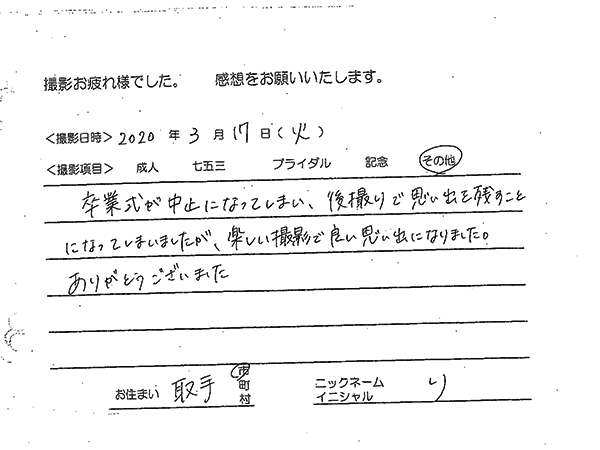 撮影お疲れ様でした。　感想をお願いいたします。
＜撮影日時＞ 2020 年 3 月 17 日（火）
＜撮影項目＞　成人　七五三　ブライダル　記念　その他
卒業式が中止になってしまい、後撮りで思い出を残すこと
になってしまいましたが、楽しい撮影で良い思い出になりました。
ありがとうございました
お住まい 取手 市町村　ニックネーム イニシャル り